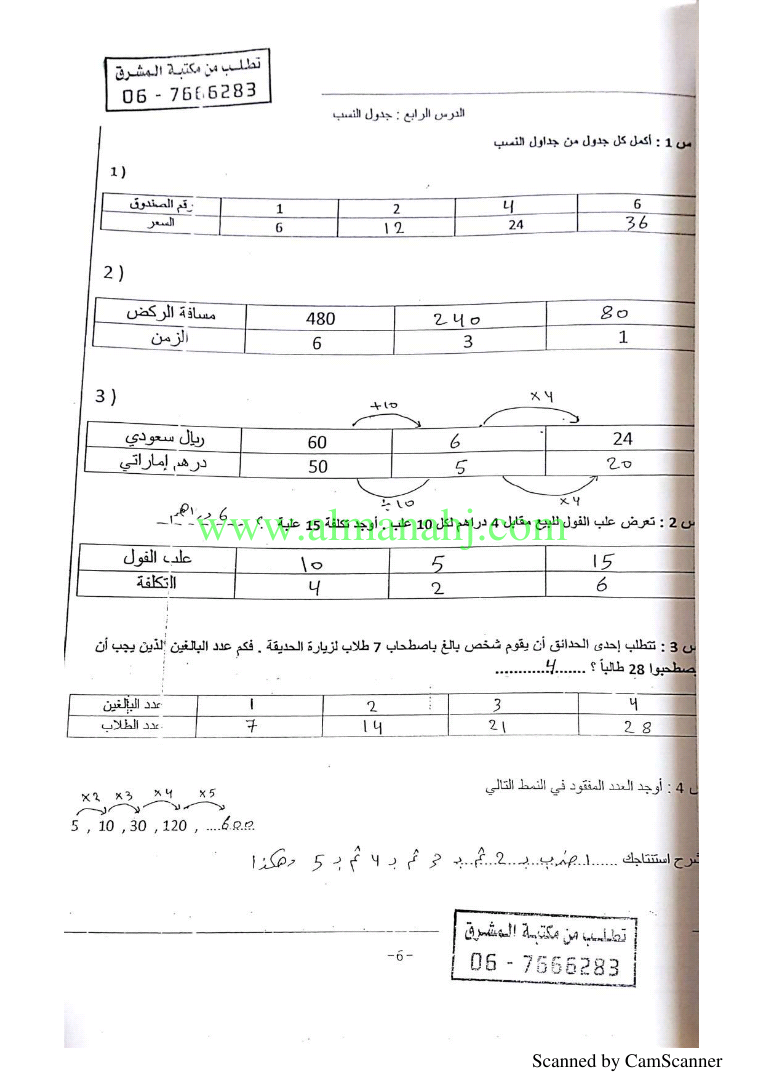 تطلب من مكتبة المشرق
06 - 7666283
الدرس الرابع : جدول النسب
س 1 : أكمل كل جدول من جداول النسب
1)
رقم الصندوق 1 2 4 6
السعر 6 12 24 36
2)
مسافة الركض 480 240 80
الزمن 6 3 1
3)
÷10 ×4
ريال سعودي 60 6 24
درهم إماراتي 50 5 20
÷10 ×4
س 2 : تعرض علب الفول للبيع مقابل 4 دراهم لكل 10 علب . أوجد تكلفة 15 علبة ؟ 6 دراهم
www.almanahj.com
علب الفول 10 5 15
التكلفة 4 2 6
س 3 : تتطلب إحدى الحدائق أن يقوم شخص بالغ باصطحاب 7 طلاب لزيارة الحديقة . فكم عدد البالغين الذين يجب أن
يصطحبوا 28 طالباً ؟ .......4............
عدد البالغين 1 2 3 4
عدد الطلاب 7 14 21 28
س 4 : أوجد العدد المفقود في النمط التالي
×2 ×3 ×4 ×5
5 , 10 , 30 , 120 , ....600....
شرح استنتاجك ......اضرب بـ 2 ثم بـ 3 ثم بـ 4 ثم بـ 5 وهكذا
تطلب من مكتبة المشرق
06 - 7666283
-6-
Scanned by CamScanner